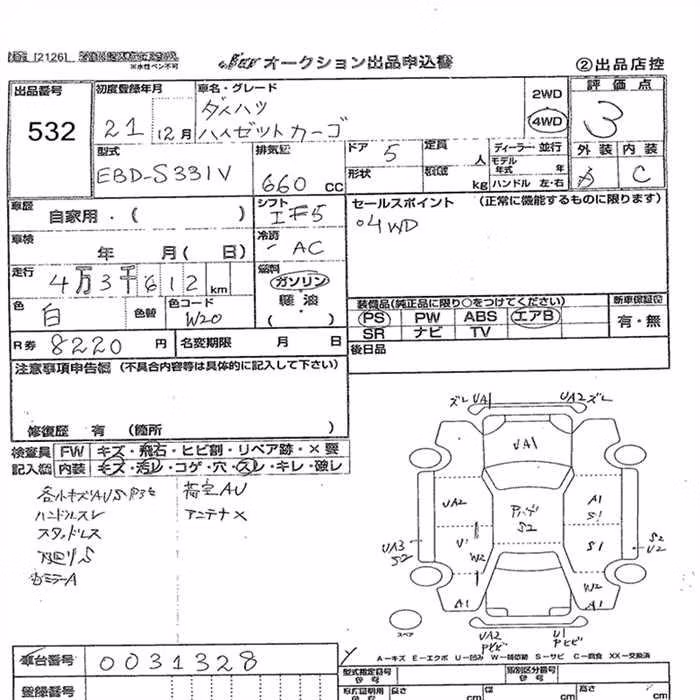 [2126]
※水性ペン不可
オークション出品申込書
②出品店控
出品番号 532
初度登録年月 21年 12月
車名・グレード ダイハツ ハイゼットカーゴ
2WD 4WD
評価点 3
型式 EBD-S331V
排気量 660 CC
ドア 5
形状
定員 人
積載 kg
ディーラー・並行
モデル年式 年
ハンドル 左・右
外装
内装 C
車歴 自家用・( )
シフト IF5
セールスポイント (正常に機能するものに限ります)
○4WD
車検 年 月( 日)
冷房 AC
走行 4万3千612 km
燃料 ガソリン 軽油 ( )
色 白 色替
色コード W20
装備品(純正品に限り○をつけてください)
新車保証書
PS PW ABS エアB
SR ナビ TV
有・無
R券 8220 円
名変期限 月 日
後日品
注意事項申告欄 (不具合内容等は具体的に記入して下さい)
修復歴 有 (箇所 )
検査員記入欄
FW キズ・飛石・ヒビ割・リペア跡・×要
内装 キズ・汚レ・コゲ・穴・スレ・キレ・破レ
荷室AU
ハンドルスレ アンテナ×
スタッドレス
ズレ UA1 UA2 ズレ
UA1
UA2 A1 S1
S2
UA3 S2 U1 W2 S1 S2 U2
W2
A1 A1
スペア
UA2 U1
A-キズ E-エクボ U-凹ミ W-補修跡 S-サビ C-腐食 XX-交換済
車台番号 0031328
型式指定番号
類別区分番号
登録番号
長さ cm 幅 cm 高さ cm